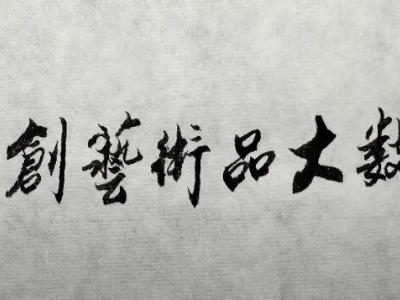 創藝術品大数